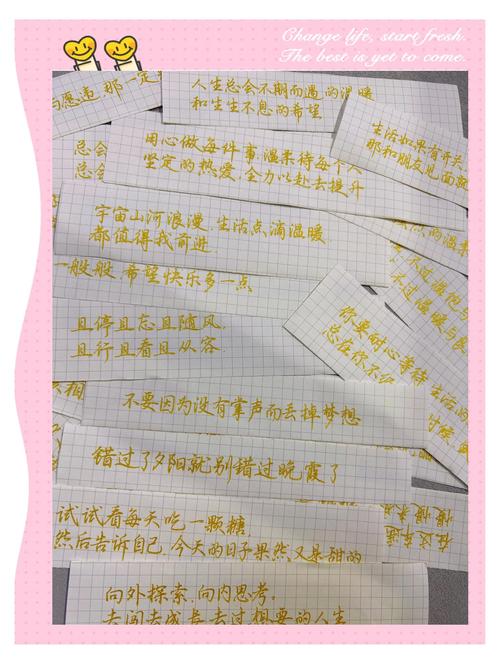 Change life, start fresh.
The best is yet to come.
与愿违.那一定
人生总会不期而遇的温暖
和生生不息的希望
生活如果有开关
那和朋友见面就
总会
总会
用心做每件事,温柔待每个人
坚定的热爱,全力以赴去提升
然的温柔
宇宙山河浪漫.生活点滴温暖.
都值得我前进.
一般般.希望快乐多一点
不过
不过温暖与良
且停且忘且随风.
且行且看且从容.
你要耐心等待
总在你不
生活的
相
不要因为没有掌声而丢掉梦想
错过了夕阳就别错过晚霞了
试试看每天吃一颗糖.
然后告诉自己.今天的日子果然又是甜的
慢慢来
在这车速
向外探索.向内思考.
去闯去成长去过想要的人生